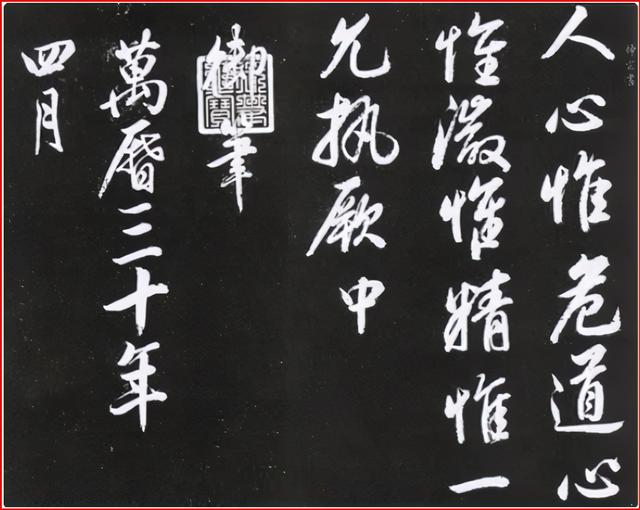 人心惟危道心
惟微惟精惟一
允执厥中
御筆
萬曆三十年
四月